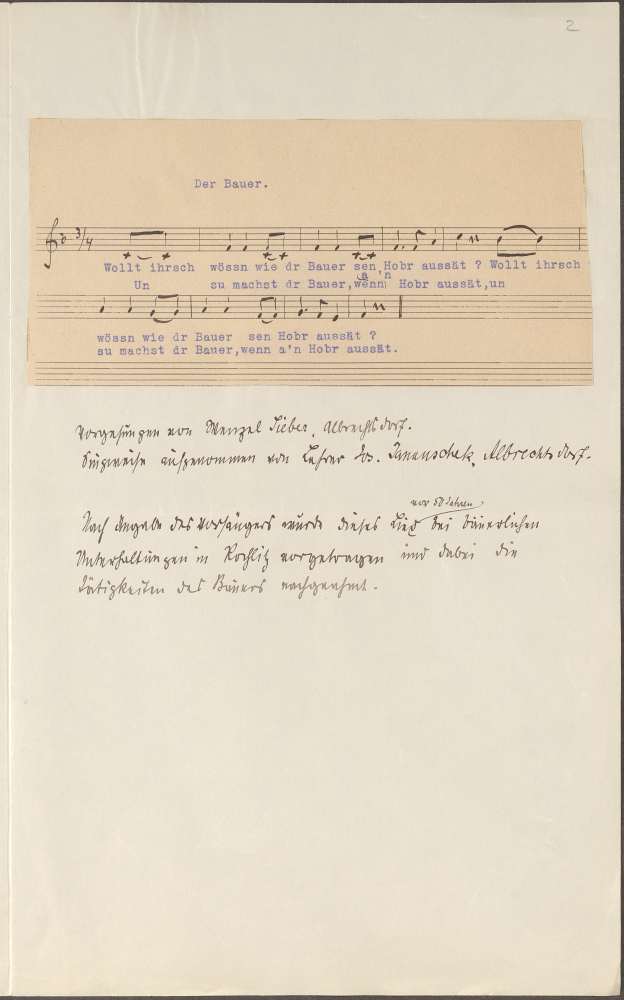 2
Der Bauer.
3/4
Wollt ihrsch wössn wie dr Bauer sen Hobr aussät ? Wollt ihrsch
a'n
Un su machst dr Bauer,wenn Hobr aussät,un
wössn wie dr Bauer sen Hobr aussät ?
su machst dr Bauer,wenn a'n Hobr aussät.
Vorgesungen von Wenzel Sieber, Albrechtsdorf.
Singweise aufgenommen von Lehrer Jos. Janauschek, Albrechtsdorf.
vor 50 Jahren
Nach Angabe des Vorsängers wurde dieses Lied bei bäuerlichen
Unterhaltungen in Rochlitz vorgetragen und dabei die
Tätigkeiten des Bauers nachgeahmt.